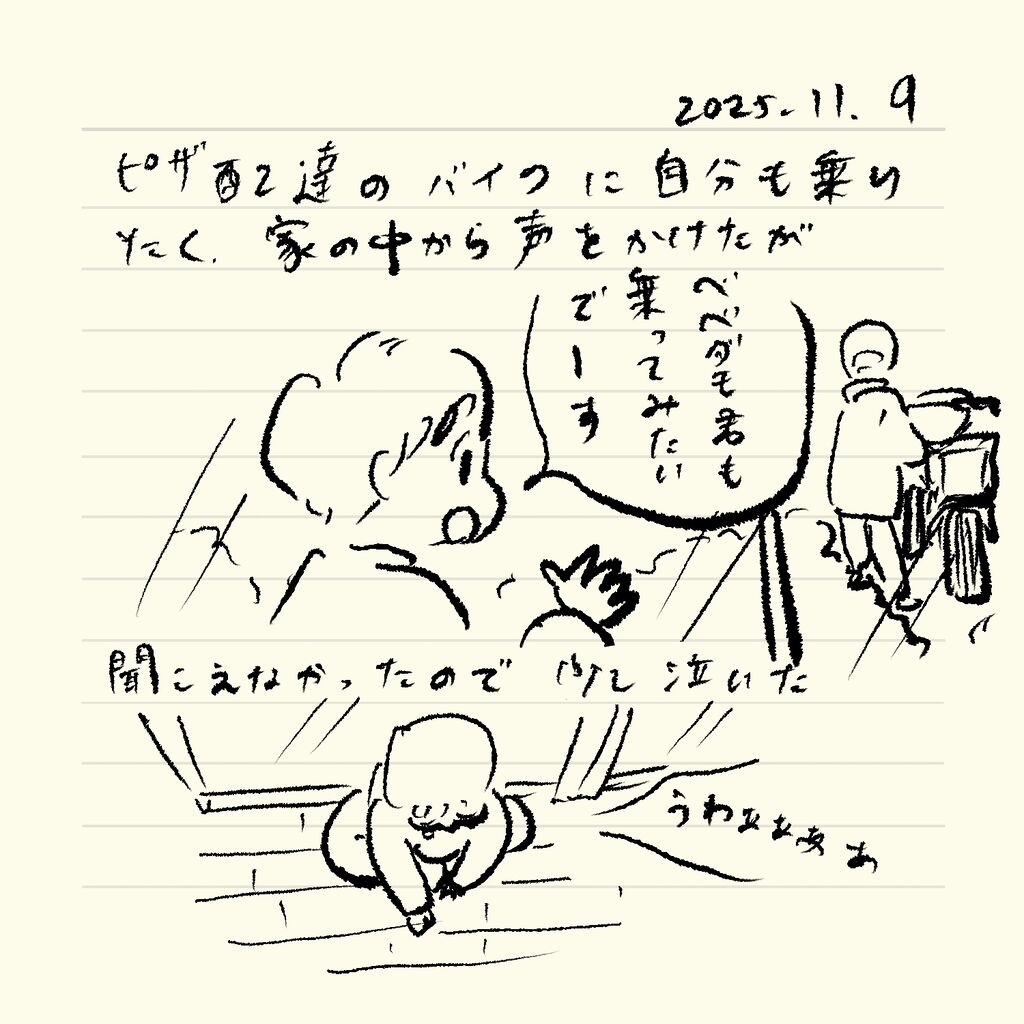 2025.11.9
ピザ配達のバイクに自分も乗り
たく、家の中から声をかけたが
ベベダモ君も
乗ってみたい
でーす
聞こえなかったので 泣いた
うわぁぁぁぁ